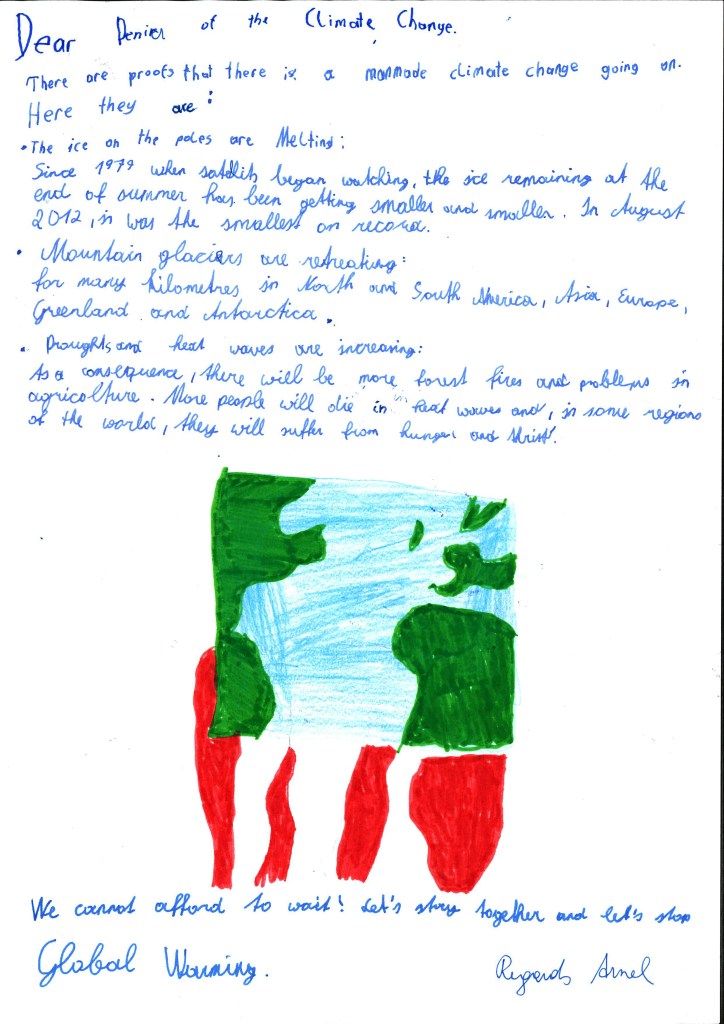 Dear Denier of the Climate Change.
There are proofs that there is a manmade climate change going on.
Here they are:
• The ice on the poles are Melting:
Since 1979 when satellits began watching, the ice remaining at the
end of summer has been getting smaller and smaller. In August
2012, in was the smallest on record.
• Mountain glaciers are retreating:
for many kilometres in North and South America, Asia, Europe,
Greenland and Antarctica.
• Droughts and heat waves are increasing:
As a consequence, there will be more forest fires and problems in
agricolture. More people will die in heat waves and, in some regions
of the world, they will suffer from hunger and thrist.
We cannot afford to wait! Let's stay together and let's stop
Global Warming.
Regards Arnel